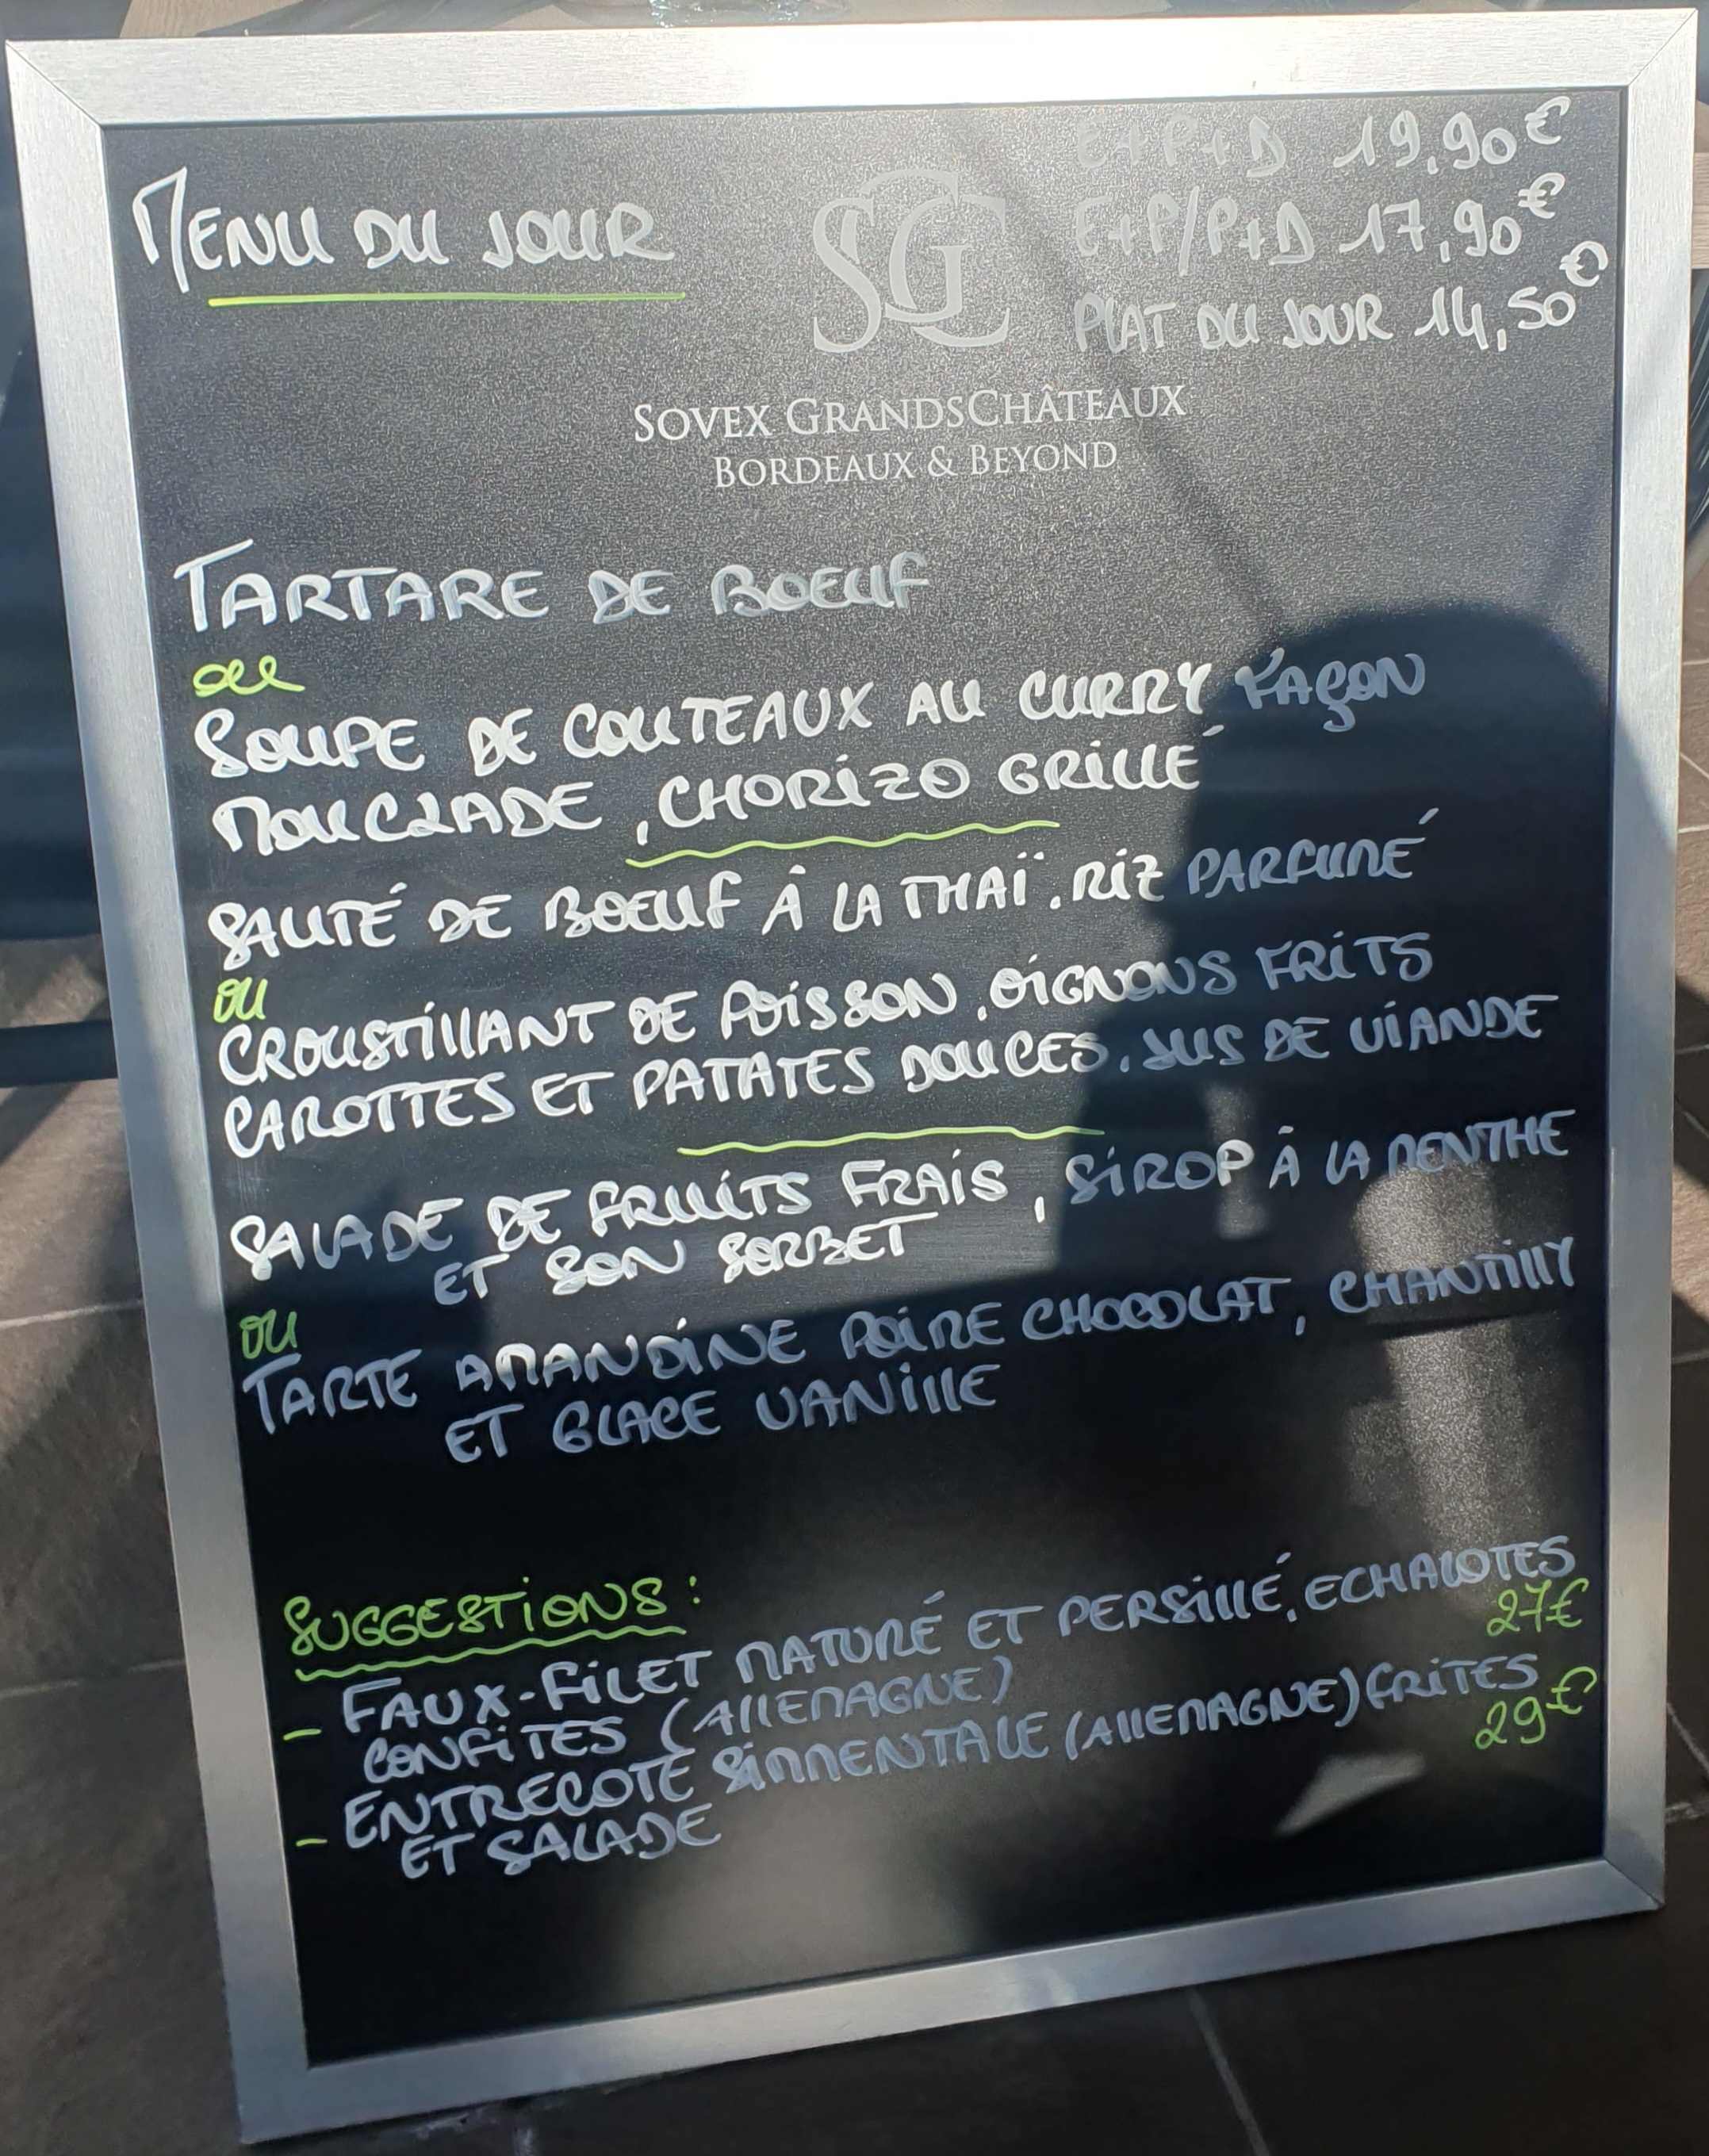 MENU DU JOUR
E+P+D 19,90€
E+P/P+D 17,90€
PLAT DU JOUR 14,50€
SGC
SOVEX GRANDSCHÂTEAUX
BORDEAUX & BEYOND
TARTARE DE BOEUF
ou
SOUPE DE COUTEAUX AU CURRY FAÇON
MOUCLADE, CHORIZO GRILLÉ
SAUTÉ DE BOEUF À LA THAÏ. RIZ PARFUMÉ
OU
CROUSTILLANT DE POISSON, OIGNONS FRITS
CAROTTES ET PATATES DOUCES. JUS DE VIANDE
SALADE DE FRUITS FRAIS, SIROP À LA MENTHE
ET SON SORBET
OU
TARTE AMANDINE POIRE CHOCOLAT, CHANTILLY
ET GLACE VANILLE
SUGGESTIONS :
- FAUX-FILET MATURÉ ET PERSILLÉ, ECHALOTES
CONFITES (ALLEMAGNE) 27€
- ENTRECOTE SIMMENTALE (ALLEMAGNE) FRITES
ET SALADE 29€